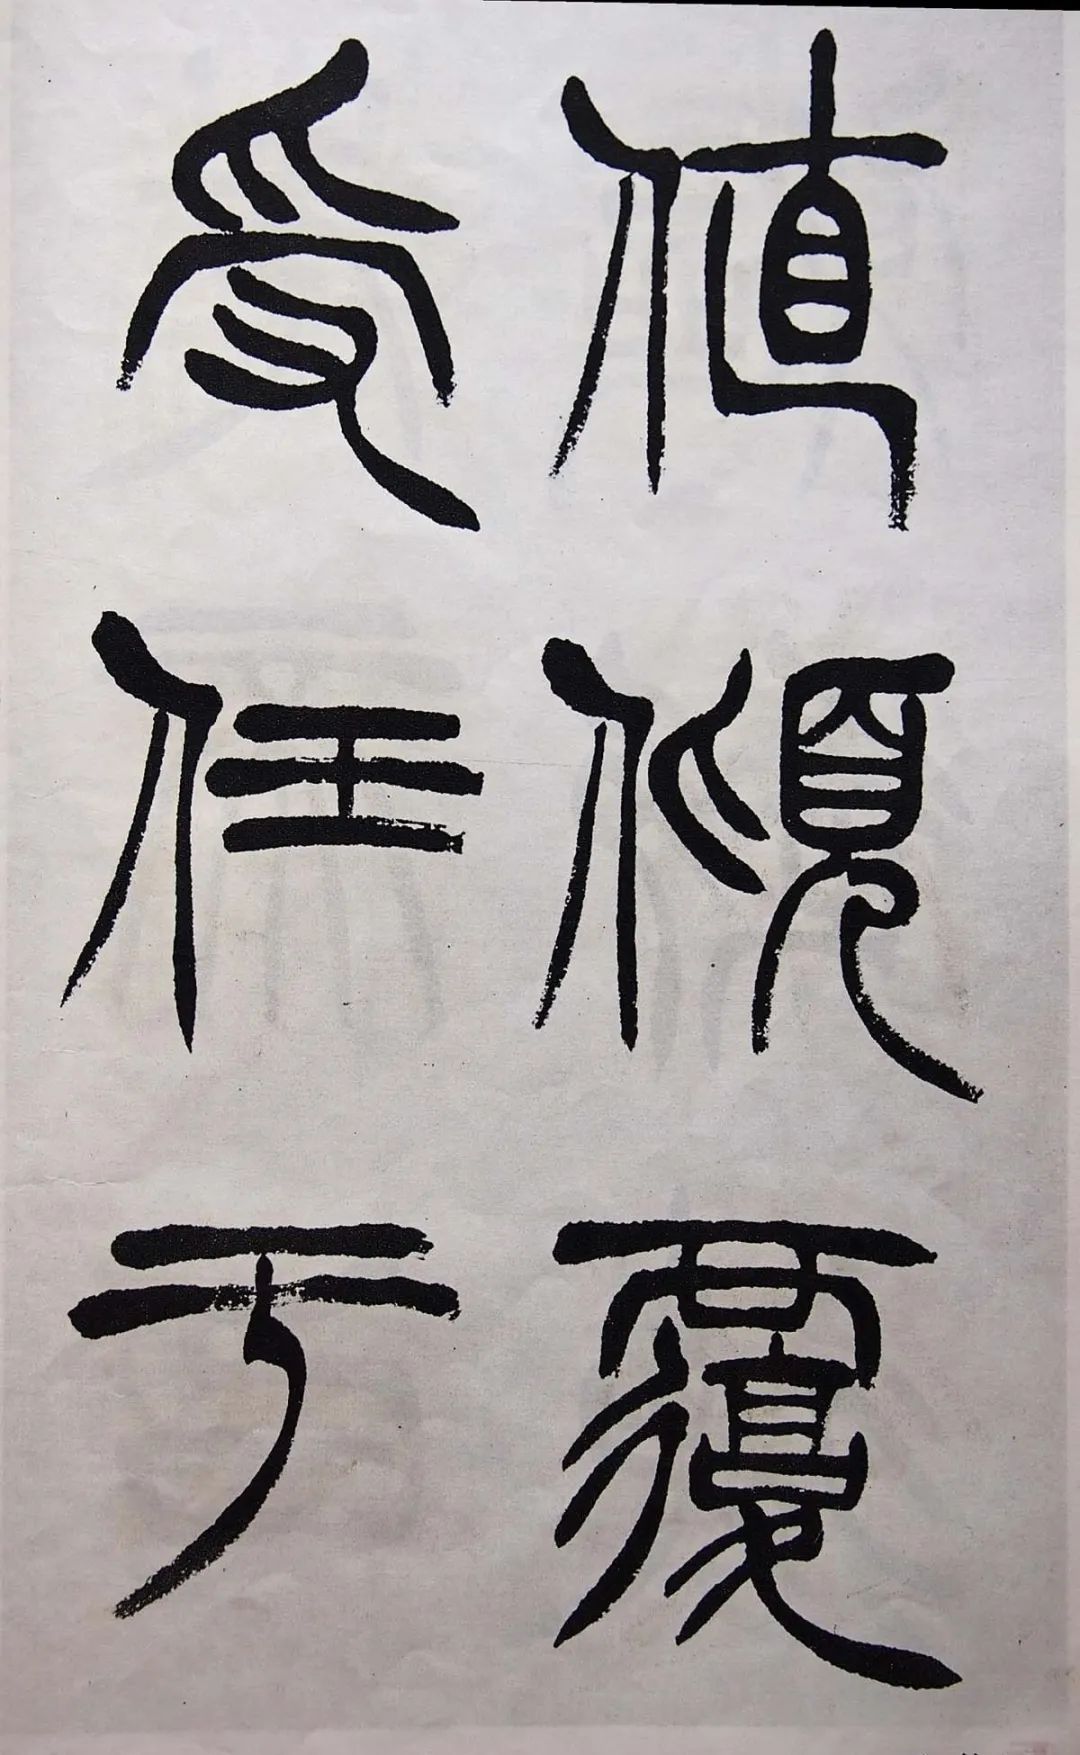 值傾覆
受任于